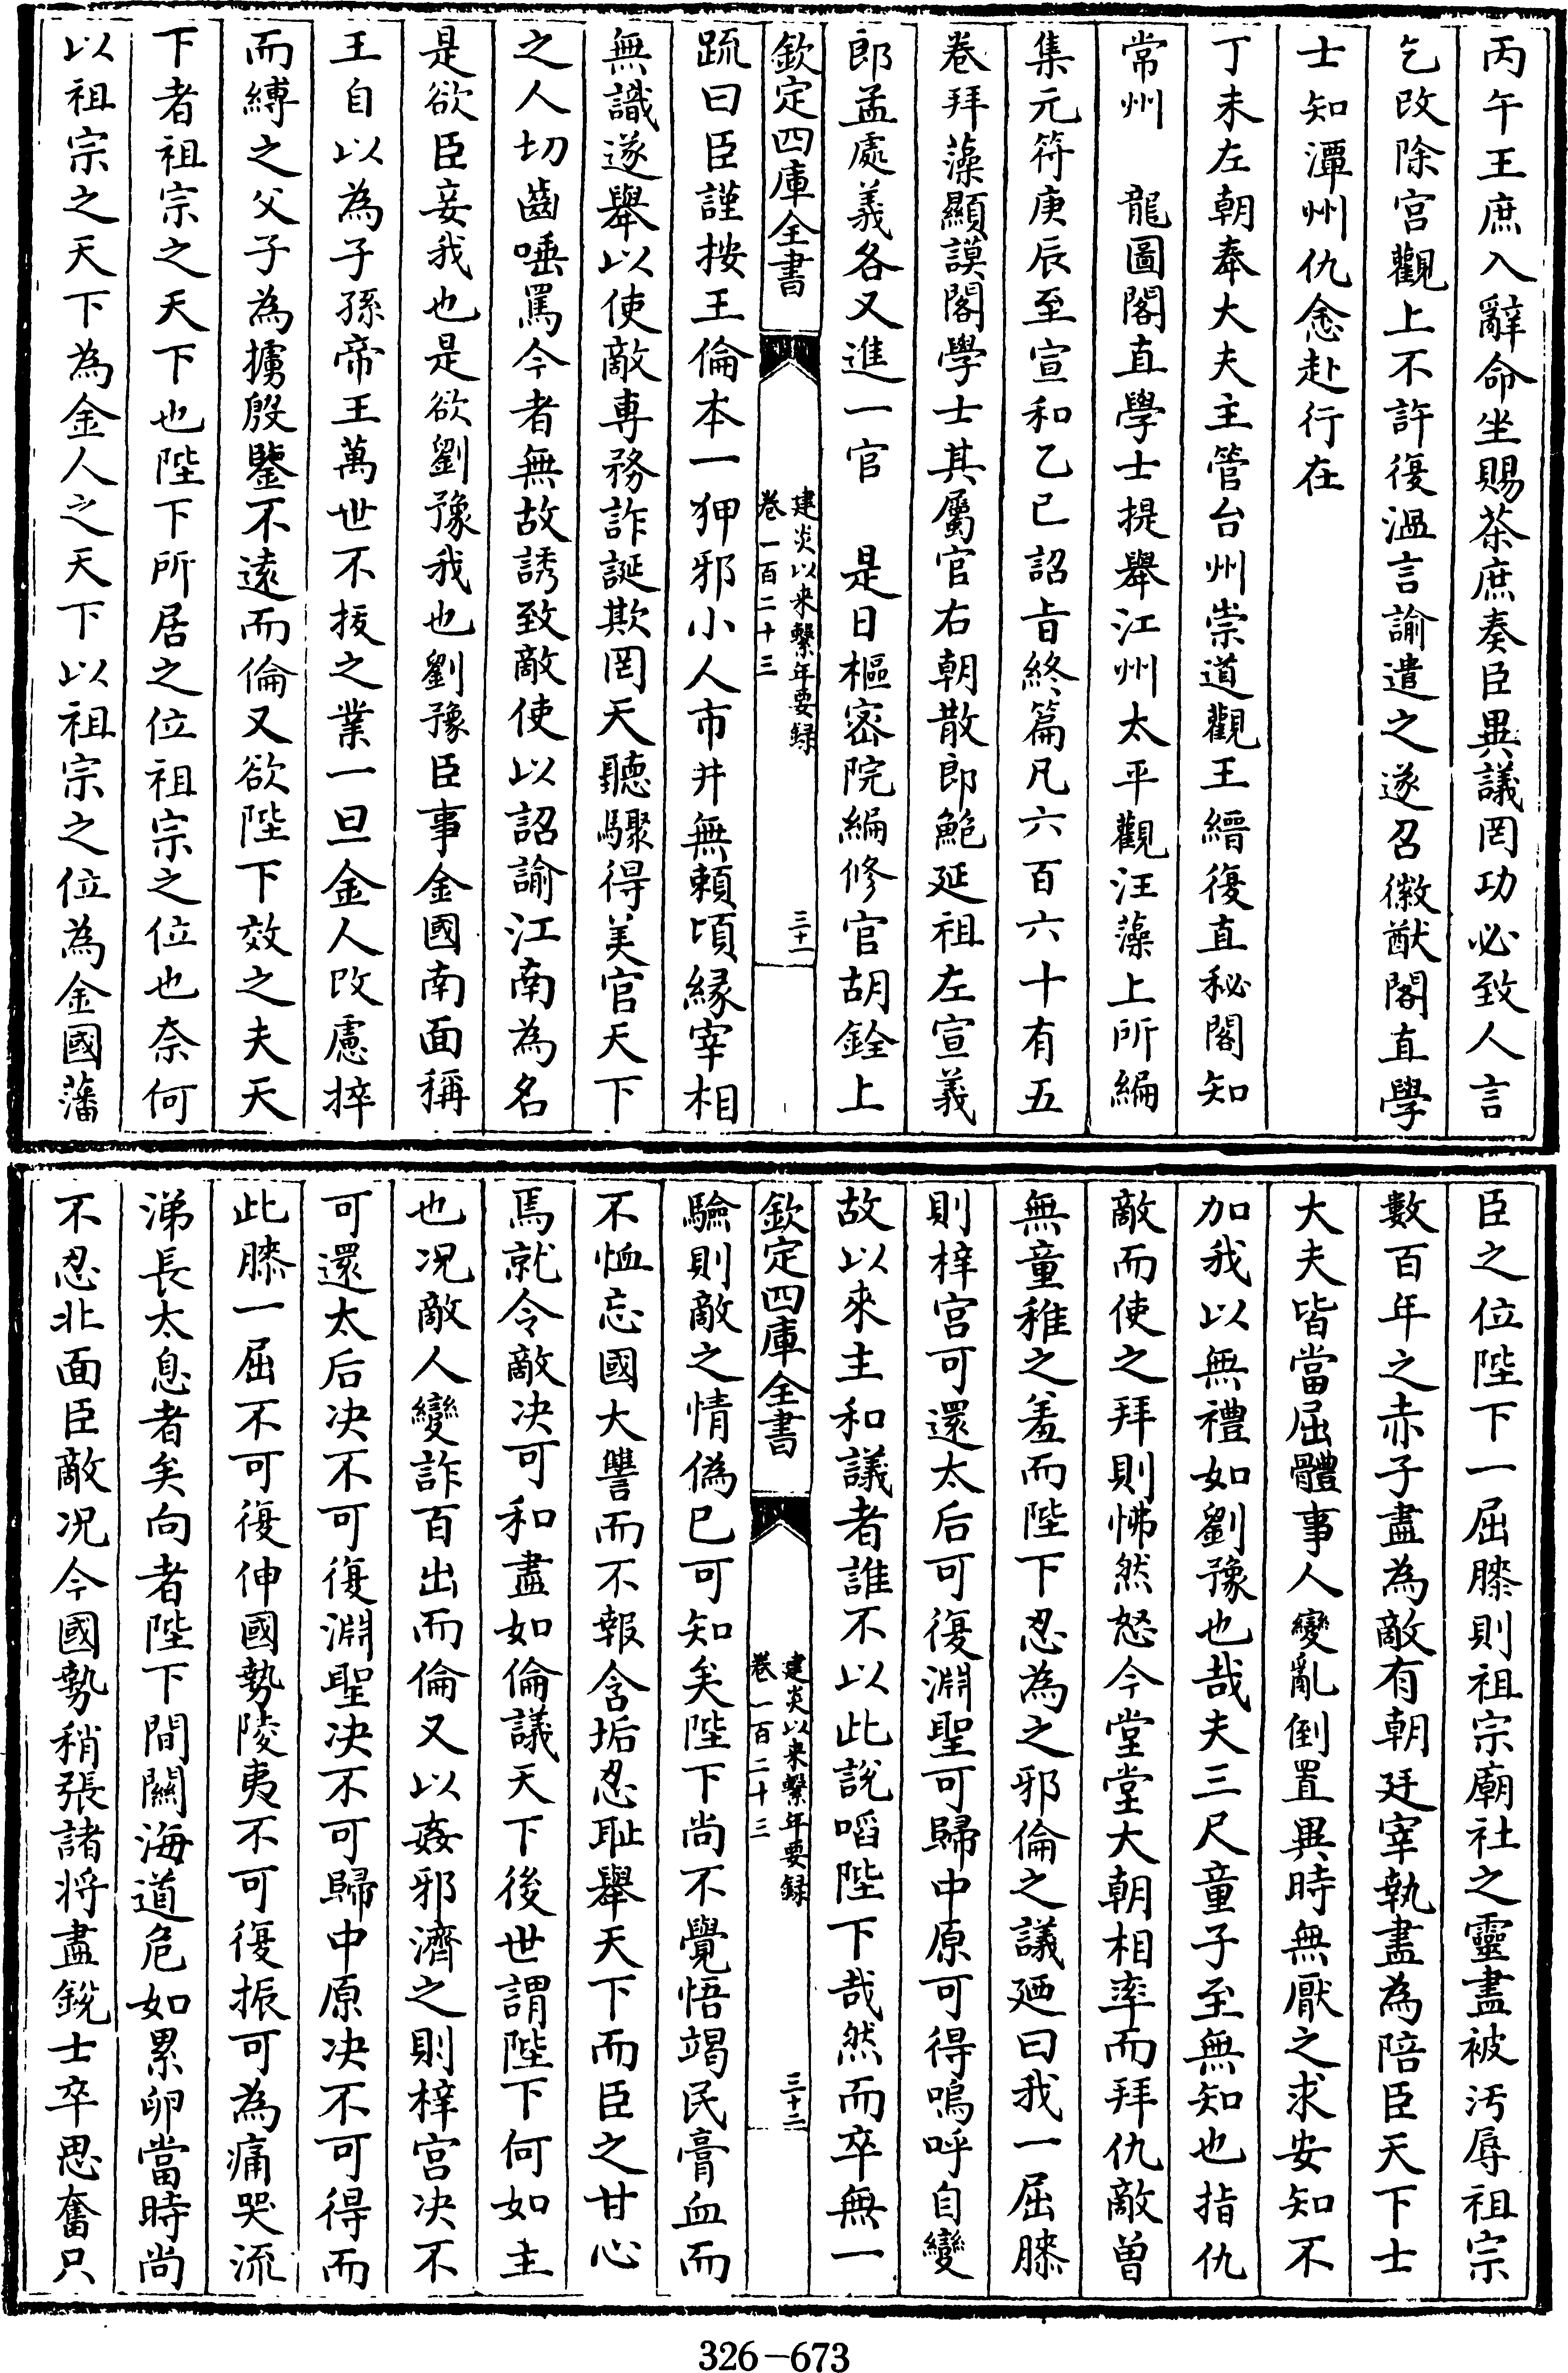 丙午王庶入辭命坐賜茶庶奏臣異議罔功必致人言
乞改除宫觀上不許復温言諭遣之遂召徽猷閣直學
士知潭州仇悆赴行在
丁未左朝奉大夫主管台州崇道觀王縉復直秘閣知
常州　龍圖閣直學士提舉江州太平觀汪藻上所編
集元符庚辰至宣和乙已詔㫖終篇凡六百六十有五
卷拜藻顯謨閣學士其屬官右朝散郎鮑延祖左宣義
郎孟處義各又進一官　是日樞密院編修官胡銓上
欽定四庫全書
建炎以來繫年要録
卷一百二十三
三十一
疏曰臣謹按王倫本一狎邪小人市井無頼頃縁宰相
無識遂舉以使敵専務詐誕欺罔天聽驟得美官天下
之人切齒唾罵今者無故誘致敵使以詔諭江南為名
是欲臣妾我也是欲劉豫我也劉豫臣事金國南面稱
王自以為子孫帝王萬世不拔之業一旦金人改慮捽
而縛之父子為擄殷鑒不逺而倫又欲陛下效之夫天
下者祖宗之天下也陛下所居之位祖宗之位也奈何
以祖宗之天下為金人之天下以祖宗之位為金國藩
臣之位陛下一屈膝則祖宗廟社之靈盡被汚辱祖宗
數百年之赤子盡為敵有朝廷宰執盡為陪臣天下士
大夫皆當屈體事人變亂倒置異時無厭之求安知不
加我以無禮如劉豫也哉夫三尺童子至無知也指仇
敵而使之拜則怫然怒今堂堂大朝相率而拜仇敵曽
無童稚之羞而陛下忍為之邪倫之議廼曰我一屈膝
則梓宫可還太后可復淵聖可歸中原可得嗚呼自變
故以來主和議者誰不以此說啗陛下哉然而卒無一
欽定四庫全書
建炎以來繫年要録
卷一百二十三
三十二
驗則敵之情偽已可知矣陛下尚不覺悟竭民膏血而
不恤忘國大讐而不報含垢忍耻舉天下而臣之甘心
焉就令敵决可和盡如倫議天下後世謂陛下何如主
也况敵人變詐百出而倫又以姦邪濟之則梓宫决不
可還太后决不可復淵聖决不可歸中原决不可得而
此膝一屈不可復伸國勢陵夷不可復振可為痛哭流
涕長太息者矣向者陛下間關海道危如累卵當時尚
不忍北面臣敵况今國勢稍張諸将盡鋭士卒思奮只
326-673